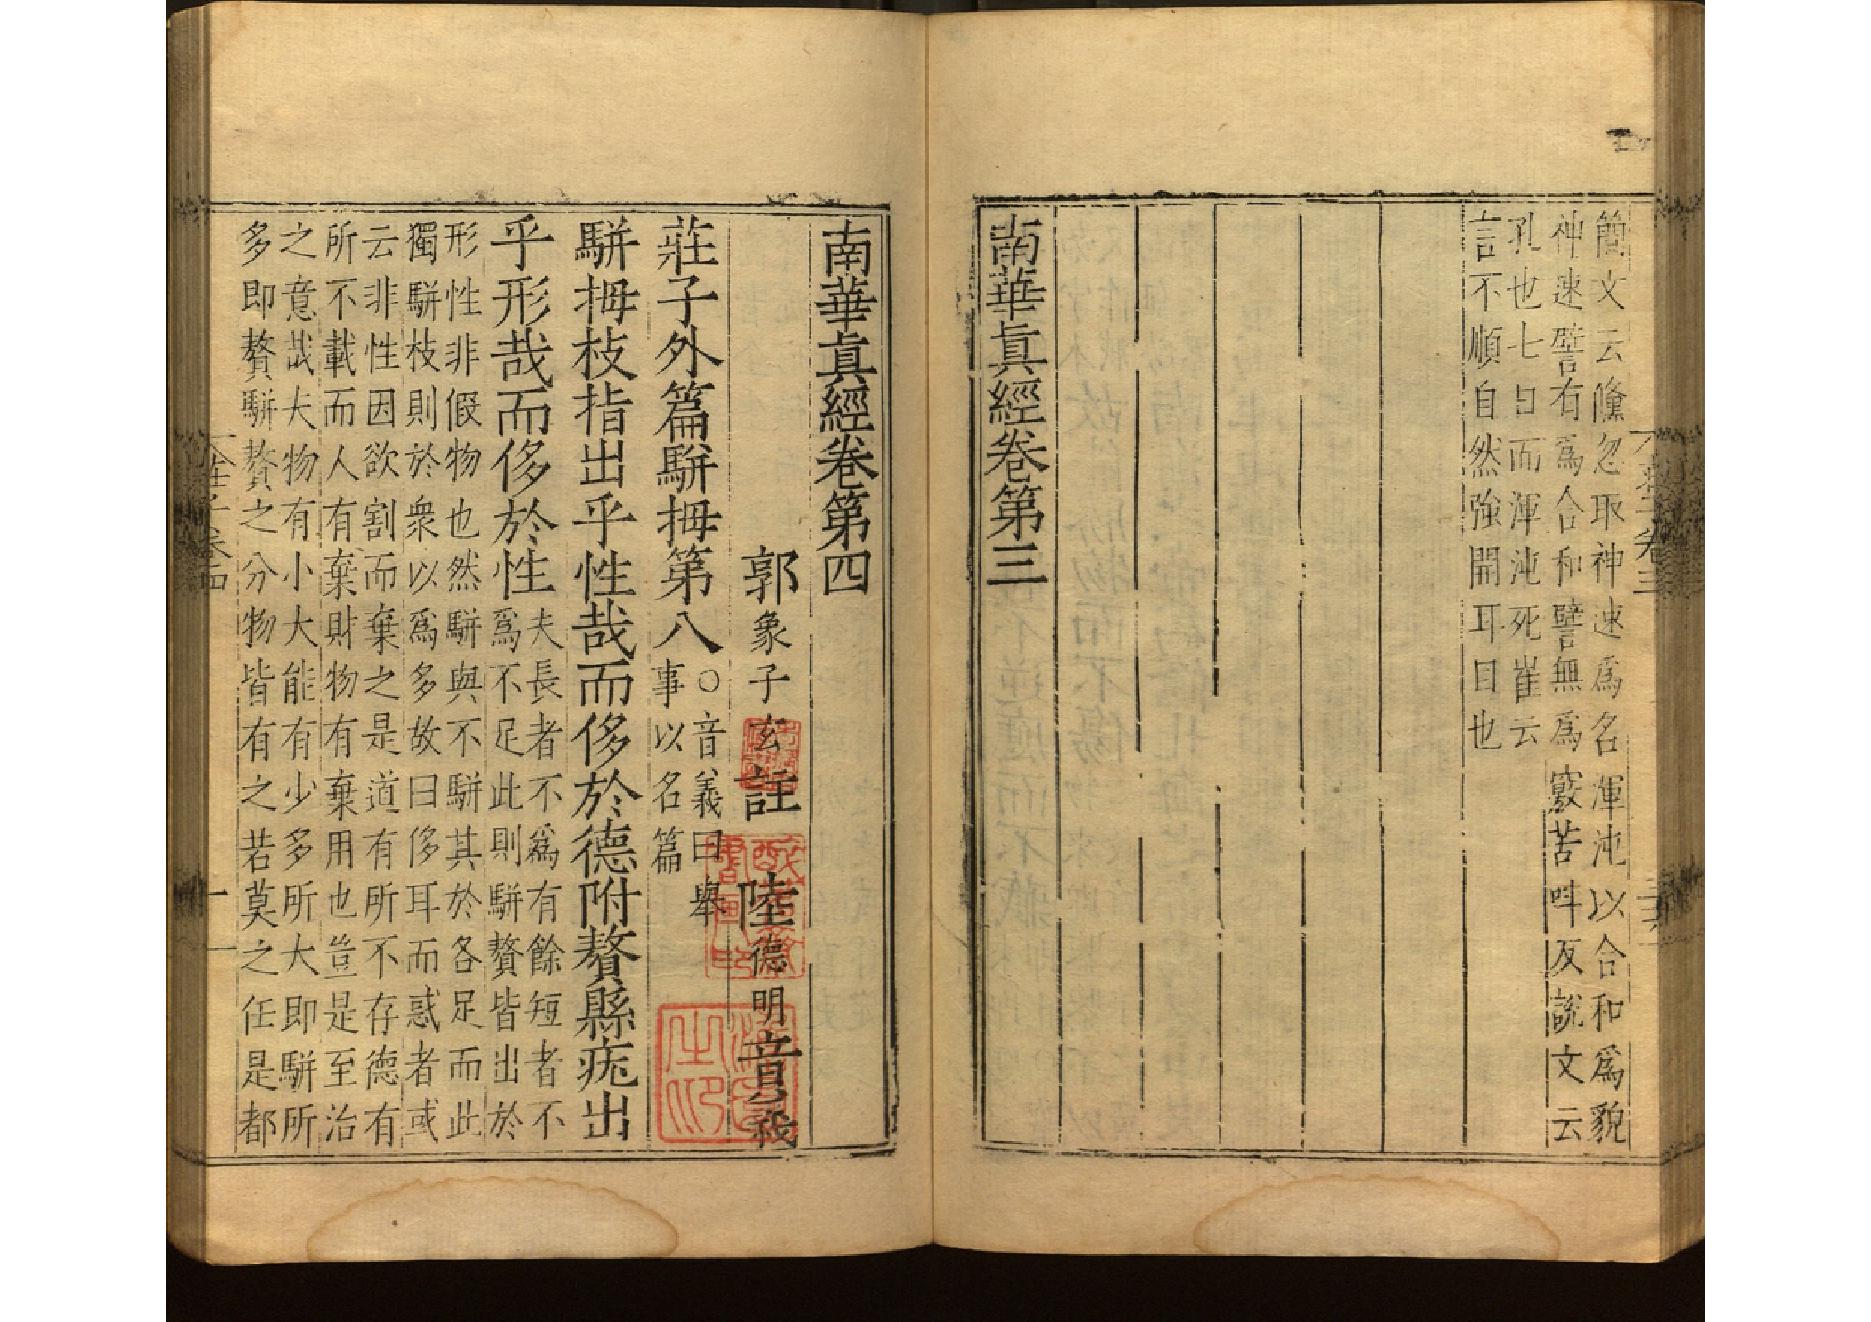 簡文云儵忽取神速爲名渾沌以合和爲貌
神速譬有爲合和譬無爲 竅苦叫反說文云
孔也七日而渾沌死崔云
言不順自然強開耳目也
南華眞經卷第三
莊子卷三
南華眞經卷第四
郭象子玄註 陸德明音義
莊子外篇騈拇第八
○音義曰舉
事以名篇
騈拇枝指出乎性哉而侈於德附贅縣疣出
乎形哉而侈於性
夫長者不爲有餘短者不
爲不足此則騈贅皆出於
形性非假物也然騈與不騈其於各足而此
獨騈枝則於衆以爲多故曰侈耳而惑者或
云非性因欲割而棄之是道有所不存德有
所不載而人有棄財物有棄用也豈是至治
之意哉夫物有小大能有少多所大即騈所
多即贅騈贅之分物皆有之若莫之任是都
莊子卷四
一